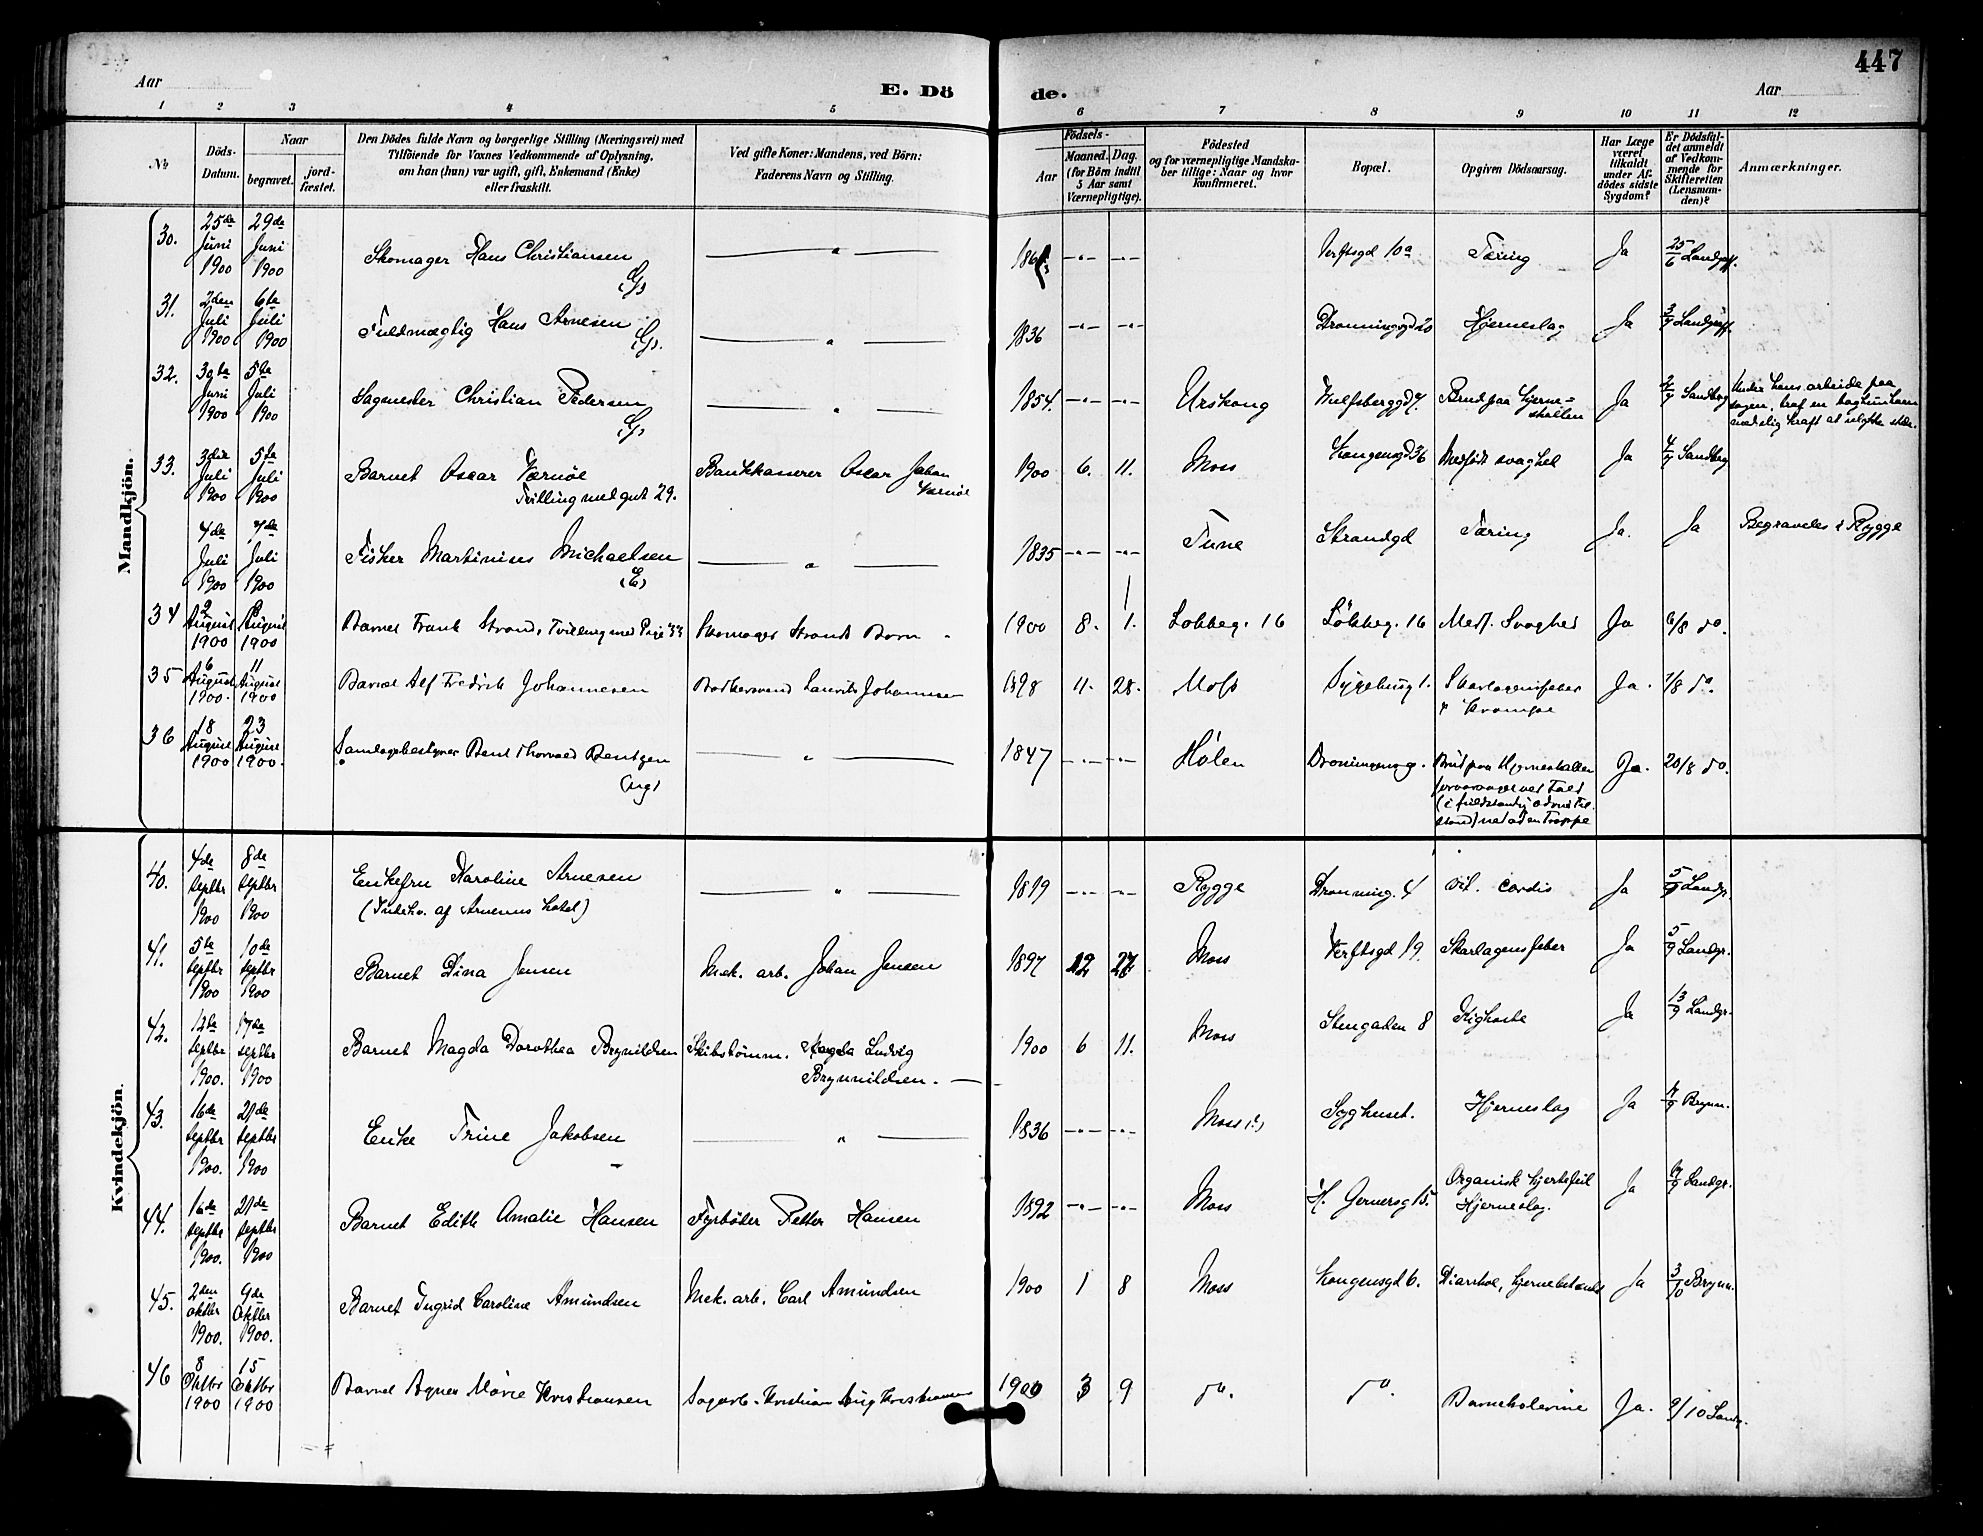 447
Aar
E. Dö
de.
Aar
1 2 3 4 5 6 7 8 9 10 11 12
No
Döds-Datum.
Naar
begravet.
jord-fæstet.
Den Dödes fulde Navn og borgerlige Stilling (Næringsvei) med
Tilföiende for Voxnes Vedkommende af Oplysning,
om han (hun) var ugift, gift, Enkemand (Enke)
eller fraskilt.
Ved gifte Koner: Mandens, ved Börn:
Faderens Navn og Stilling.
Födsels-
Aar
Maaned.
Dag.
(for Börn indtil
5 Aar samt
Værnepligtige).
Födested
og for værnepligtige Mandska-
ber tillige: Naar og hvor
konfirmeret.
Bopæl.
Opgiven Dödsaarsag.
Har Læge
været
tilkaldt
under Af-
dödes sidste
Sygdom?
Er Dödsfal-
det anmeldt
af Vedkom-
mende for
Skifteretten
(Lensman-
den)?
Anmærkninger.
Mandkjön.
30. 25de Juni 1900 29de Juni 1900 Skomager Hans Christiansen (G) — " — —"— —"— Verftsgd 10a Tæring Ja 25/6
31. 2den Juli 1900 6te Juli 1900 Fuldmægtig Hans Arnesen (G). — " — 1836 —"— —"— Dronninggd Hjerneslag Ja
32. 30te Juni 1900 5te Juli 1900 Sagmester Christian Pedersen (G) — " — 1854. —"— —"— Urskoug Brud paa hjerne=
skallen Ja Sandberg Under hans arbeide paa
sagen, traf en
kraft at
33. 3die Juli 1900 5te Juli 1900 Barnet Oscar Værnöe
Tvilling med gut 29. Bankkaserer Oscar Johan
Værnöe 1900 6. 11. Moss Kongensgd 36 Medfödt svaghed Ja Sandberg
4de Juli 1900 7de Juli 1900 Fisker Martinius Michaelsen
(E) — " — 1835 —"— —"— Tune Strandgd Tæring Ja. Ja Begravedes i Rygge
34 2 August 1900 8 August 1900 Barnet Frank Strand, Tvilling med Pige Skomager Strands Barn 1900 8. 1. Lökkeg. 16 Lökkeg. 16 Medf. Svaghed Ja 6/8 do.
35 6 August 1900. 11 August 1900 Barnet Alf Fredrik Johannesen Bödkersvend Laurits Johannesen 1898 11. 28. Moss Sygehusg 1. Skarlagensfeber
Krampe Ja. 7/8 do.
36 18 August 1900 23 August 1900. Samlagsbestyrer Bent Thorvald Bentzen
(ug) — " — 1847 —"— —"— Hölen Dronningensg. Brud paa Hjerneskallen
foraarsaget ved Fald
(i fuldstændig ædru Til-
stand) ned ad en Trappe Ja. 20/8 do.
Kvindekjön.
40. 4de septbr 1900 8de septbr 1900 Enkefru Karoline Arnesen
(Indehv. af Arnesens hotel) — " — 1819 —"— —"— Rygge Dronning. 4 vit. cordis Ja 5/9 Landgr.
41. 5te septbr 1900 10de septbr 1900 Barnet Dina Jensen Mek. arb. Johan Jensen 1897 12 27 Moss Verftsgd 19. Skarlagensfeber Ja 5/9 Landgr.
42. 12te septbr 1900. 17de septbr 1900 Barnet Magda Dorothea Brynildsen Skibstömm. Ludvig
Brynnildsen. 1900 6 11. Moss Stengaden 8 Kighoste Ja 13/9 Landgr.
43. 16de septbr 1900. 21de septbr 1900 Enke Trine Jakobsen — " — 1836 —"— —"— Moss (?) Syghuset. Hjerneslag Ja Brynn.
44. 16de septbr 1900. 21de septbr 1900 Barnet Edith Amalie Hansen Fyrböter Petter Hansen 1892 —"— —"— Moss H. Gernersg 15. Organisk hjertefeil
Hjerneslag. Ja Landgr.
45. 2den oktbr 1900. 9de Oktbr 1900. Barnet Ingrid Caroline Amundsen Mek. arb. Carl Amundsen 1900 1 8 Moss Kongensgd 6. Diarrhoe, hjernebetænd. Ja 3/10 Brynn.
46 8 Oktbr 1900 15 Oktbr 1900 Barnet Agnes Marie Kristiansen Sagarb. Kristian Aug Kristiansen 1900 3 9 do. do. Barnekolerine Ja. 9/10 Landg.